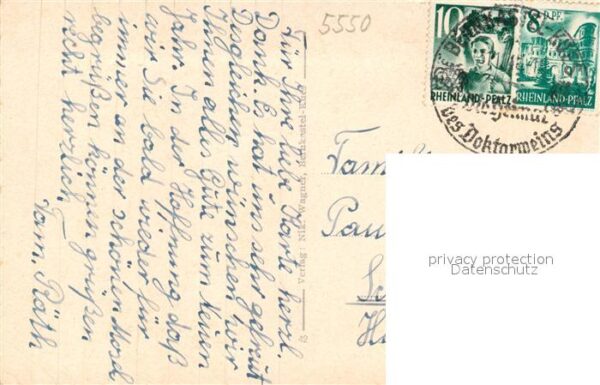 5550
10
8 D.PF.
RHEINLAND-PFALZ
RHEINLAND-PFALZ
des Doktorweins
Für Ihre liebe Karte herzl.
Dank. Es hat uns sehr gefreut
Desgleichen wünschen wir
Ihnen alles Gute zum Neuen
Jahr. In der Hoffnung daß
wir Sie bald wieder für
immer an der schönen Mosel
begrüßen können grüßen
recht herzlich
Fam. Räth
Verlag: Nik. Wagner, Bernkastel-Kues
Famil
Pau
privacy protection
Datenschutz